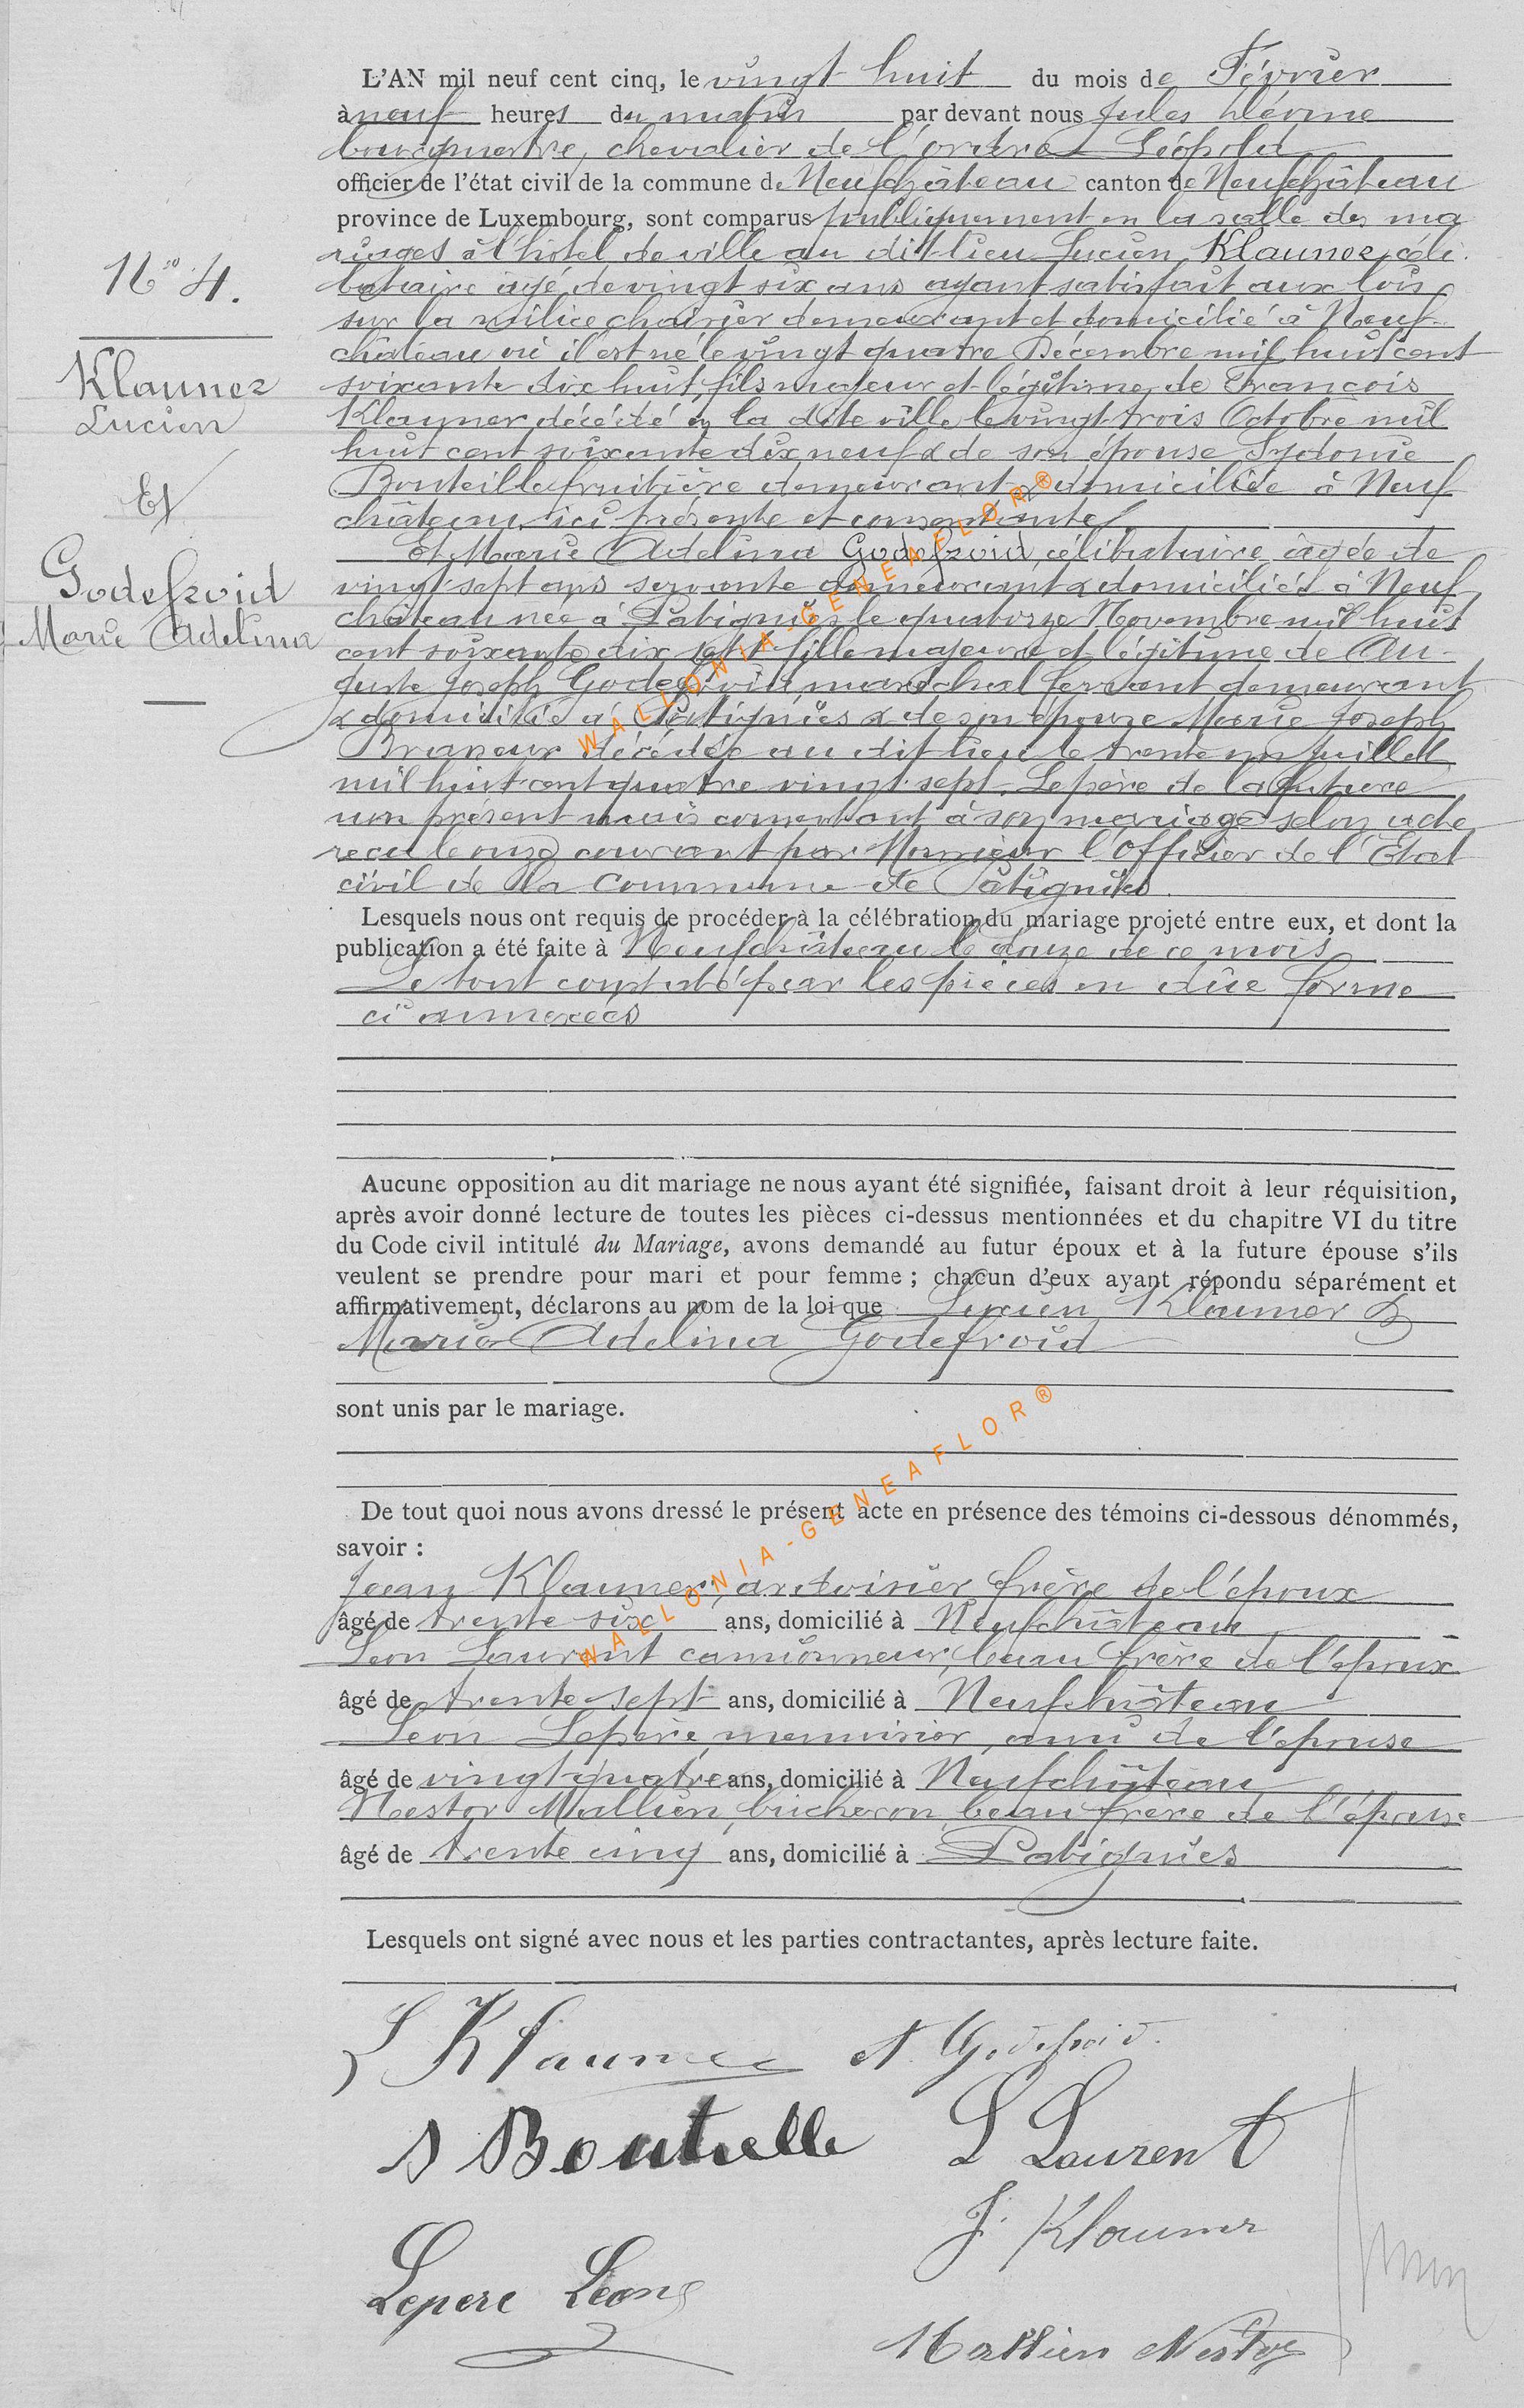 L'AN mil neuf cent cinq, le vingt huit du mois de Février
à neuf heures du matin par devant nous Jules
bourgmestre, chevalier de l'ordre Léopold
officier de l'état civil de la commune de Neufchâteau canton de Neufchâteau
province de Luxembourg, sont comparus publiquement en la salle des ma
riages à l'hôtel de ville au dit lieu Lucien Klauner, céli
bataire âgé de vingt six ans ayant satisfait aux lois
sur la milice demeurant et domicilié à Neuf-
château où il est né le vingt quatre Décembre mil huit cent
soixante dix huit, fils majeur et légitime de François
Klauner décédé en la dite ville le vingt trois Octobre mil
huit cent soixante dix neuf & de son épouse Sydonie
Bouteille fruitière demeurant & domiciliée à Neuf
château, ici présente et consentante
Et Marie Adelina Godefroid, célibataire, âgée de
vingt sept ans servante demeurant & domiciliée à Neuf
château née à Patignies le quatorze Novembre mil huit
cent soixante dix sept fille majeure et légitime de Au-
guste Joseph Godefroid maréchal ferrant demeurant
& domicilié à Patignies & de son épouze Marie Joseph
décédée au dit lieu le trente un juillet
mil huit cent quatre vingt sept. Le père de la future
non présent mais consentant à son mariage selon acte
reçu le onze courant par Monsieur l'Officier de l'Etat
civil de la Commune de Patignies.
N° 4.
Klauner
Lucien
Et
Godefroid
Marie Adelina
Lesquels nous ont requis de procéder à la célébration du mariage projeté entre eux, et dont la
publication a été faite à Neufchâteau le douze de ce mois
Le tout constaté par les pièces en dûe forme
ci annexées
Aucune opposition au dit mariage ne nous ayant été signifiée, faisant droit à leur réquisition,
après avoir donné lecture de toutes les pièces ci-dessus mentionnées et du chapitre VI du titre
du Code civil intitulé du Mariage, avons demandé au futur époux et à la future épouse s'ils
veulent se prendre pour mari et pour femme ; chacun d'eux ayant répondu séparément et
affirmativement, déclarons au nom de la loi que Lucien Klauner &
Marie Adelina Godefroid
sont unis par le mariage.
De tout quoi nous avons dressé le présent acte en présence des témoins ci-dessous dénommés,
savoir :
Jean Klauner, ardoisier frère de l'époux
âgé de trente six ans, domicilié à Neufchâteau
Léon Laurent camionneur, beau frère de l'époux
âgé de trente sept ans, domicilié à Neufchâteau
Léon Lepère menuisier, ami de l'épouse
âgé de vingt quatre ans, domicilié à Neufchâteau
Nestor Mathieu, bucheron, beau frère de l'épouse
âgé de trente cinq ans, domicilié à Patignies
Lesquels ont signé avec nous et les parties contractantes, après lecture faite.
L Klauner A. Godefroid.
S Bouteille L Laurent
J. Klauner
Lepere Léon
Mathieu Nestor
WALLONIA-GENEAFLOR®
WALLONIA-GENEAFLOR®